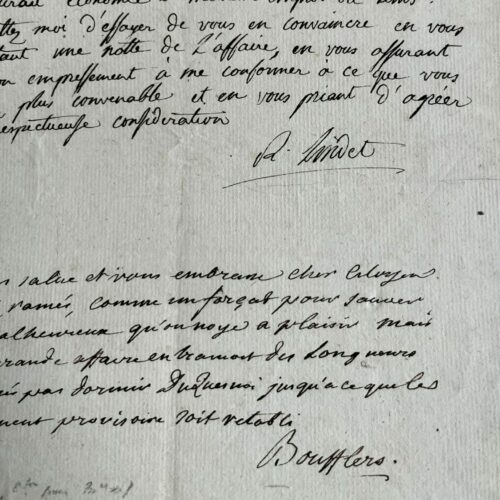 moi d'essayer de vous en convaincre en vous
une notte de L'affaire, en vous assurant
empressement à me conformer à ce que vous
plus convenable et en vous priant d'agréer
respectueuse considération
R. Lindet
salue et vous embrasse cher citoyen
ramés, comme un forçat pour sauver
malheureux qu'on noye a plaisir mais
grande affaire en des longueurs
pas dormir Duquesnoi jusqu'a ce que les
provisoire soit retabli
Boufflers.